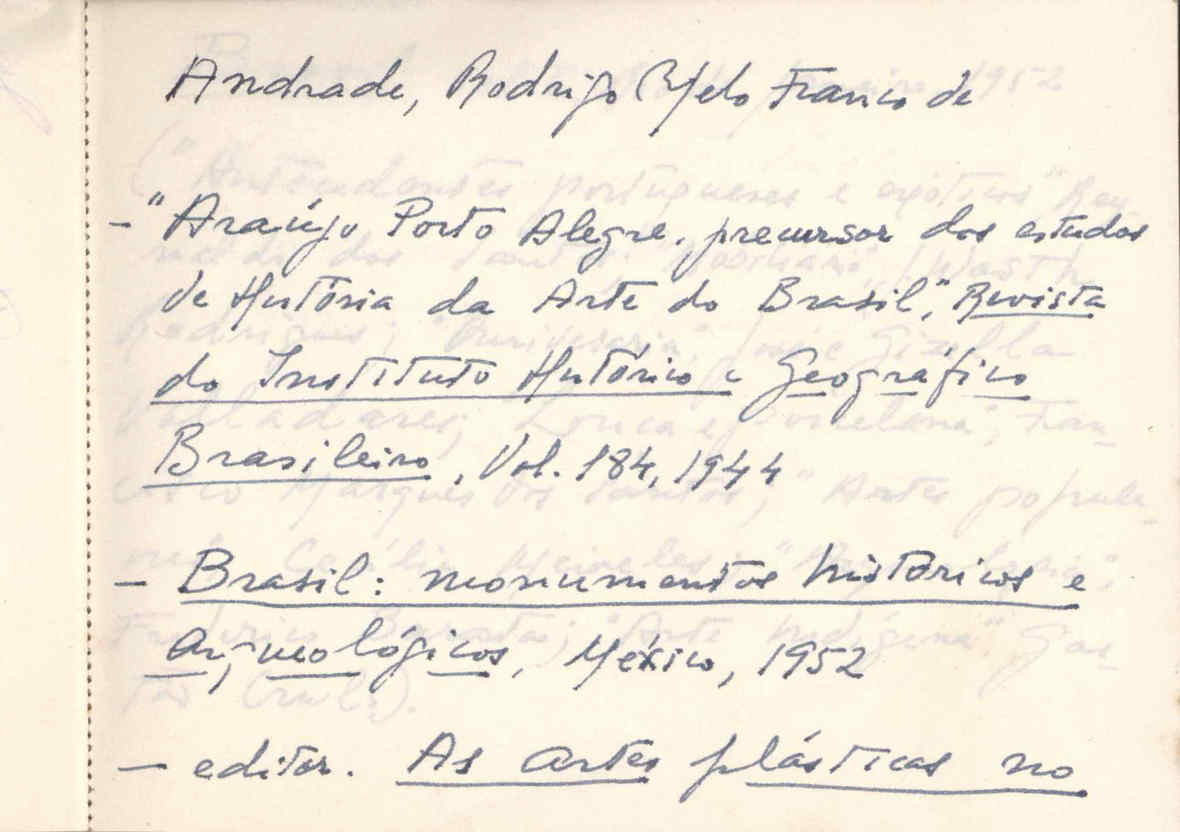 Andrade, Rodrigo Melo Franco de
- "Araújo Porto Alegre, precursor dos estudos
de História da Arte do Brasil", Revista
do Instituto Histórico e Geográfico
Brasileiro, Vol. 184, 1944
- Brasil: monumentos históricos e
arqueológicos, México, 1952
- editor. As artes plásticas no